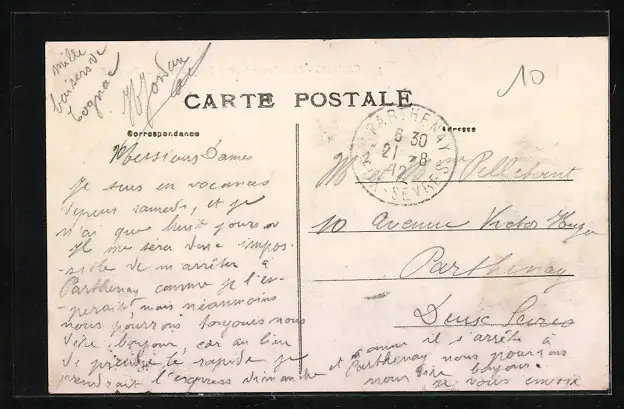 mille
baisers de
Cognac
10
CARTE POSTALE
Correspondance
Adresse
PARTHENAY
6 30
21 -8
12
SEVRES
Messieurs Dames
Je suis en vacances
depuis samedi, et je
n'ai que huit jours
Il me sera donc impos-
sible de m'arrêter à
Parthenay comme je l'es-
perait, mais néanmoins
nous pourrons toujours nous
dire bonjour, car au lieu
de prendre le rapide je
prendrait l'express dimanche
et comme il s'arrête à
Parthenay nous pourrons
nous dire bonjour.
je vous envoie
M et Mme Pelletant
10 Avenue Victor Hugo
Parthenay
Deux Sèvres